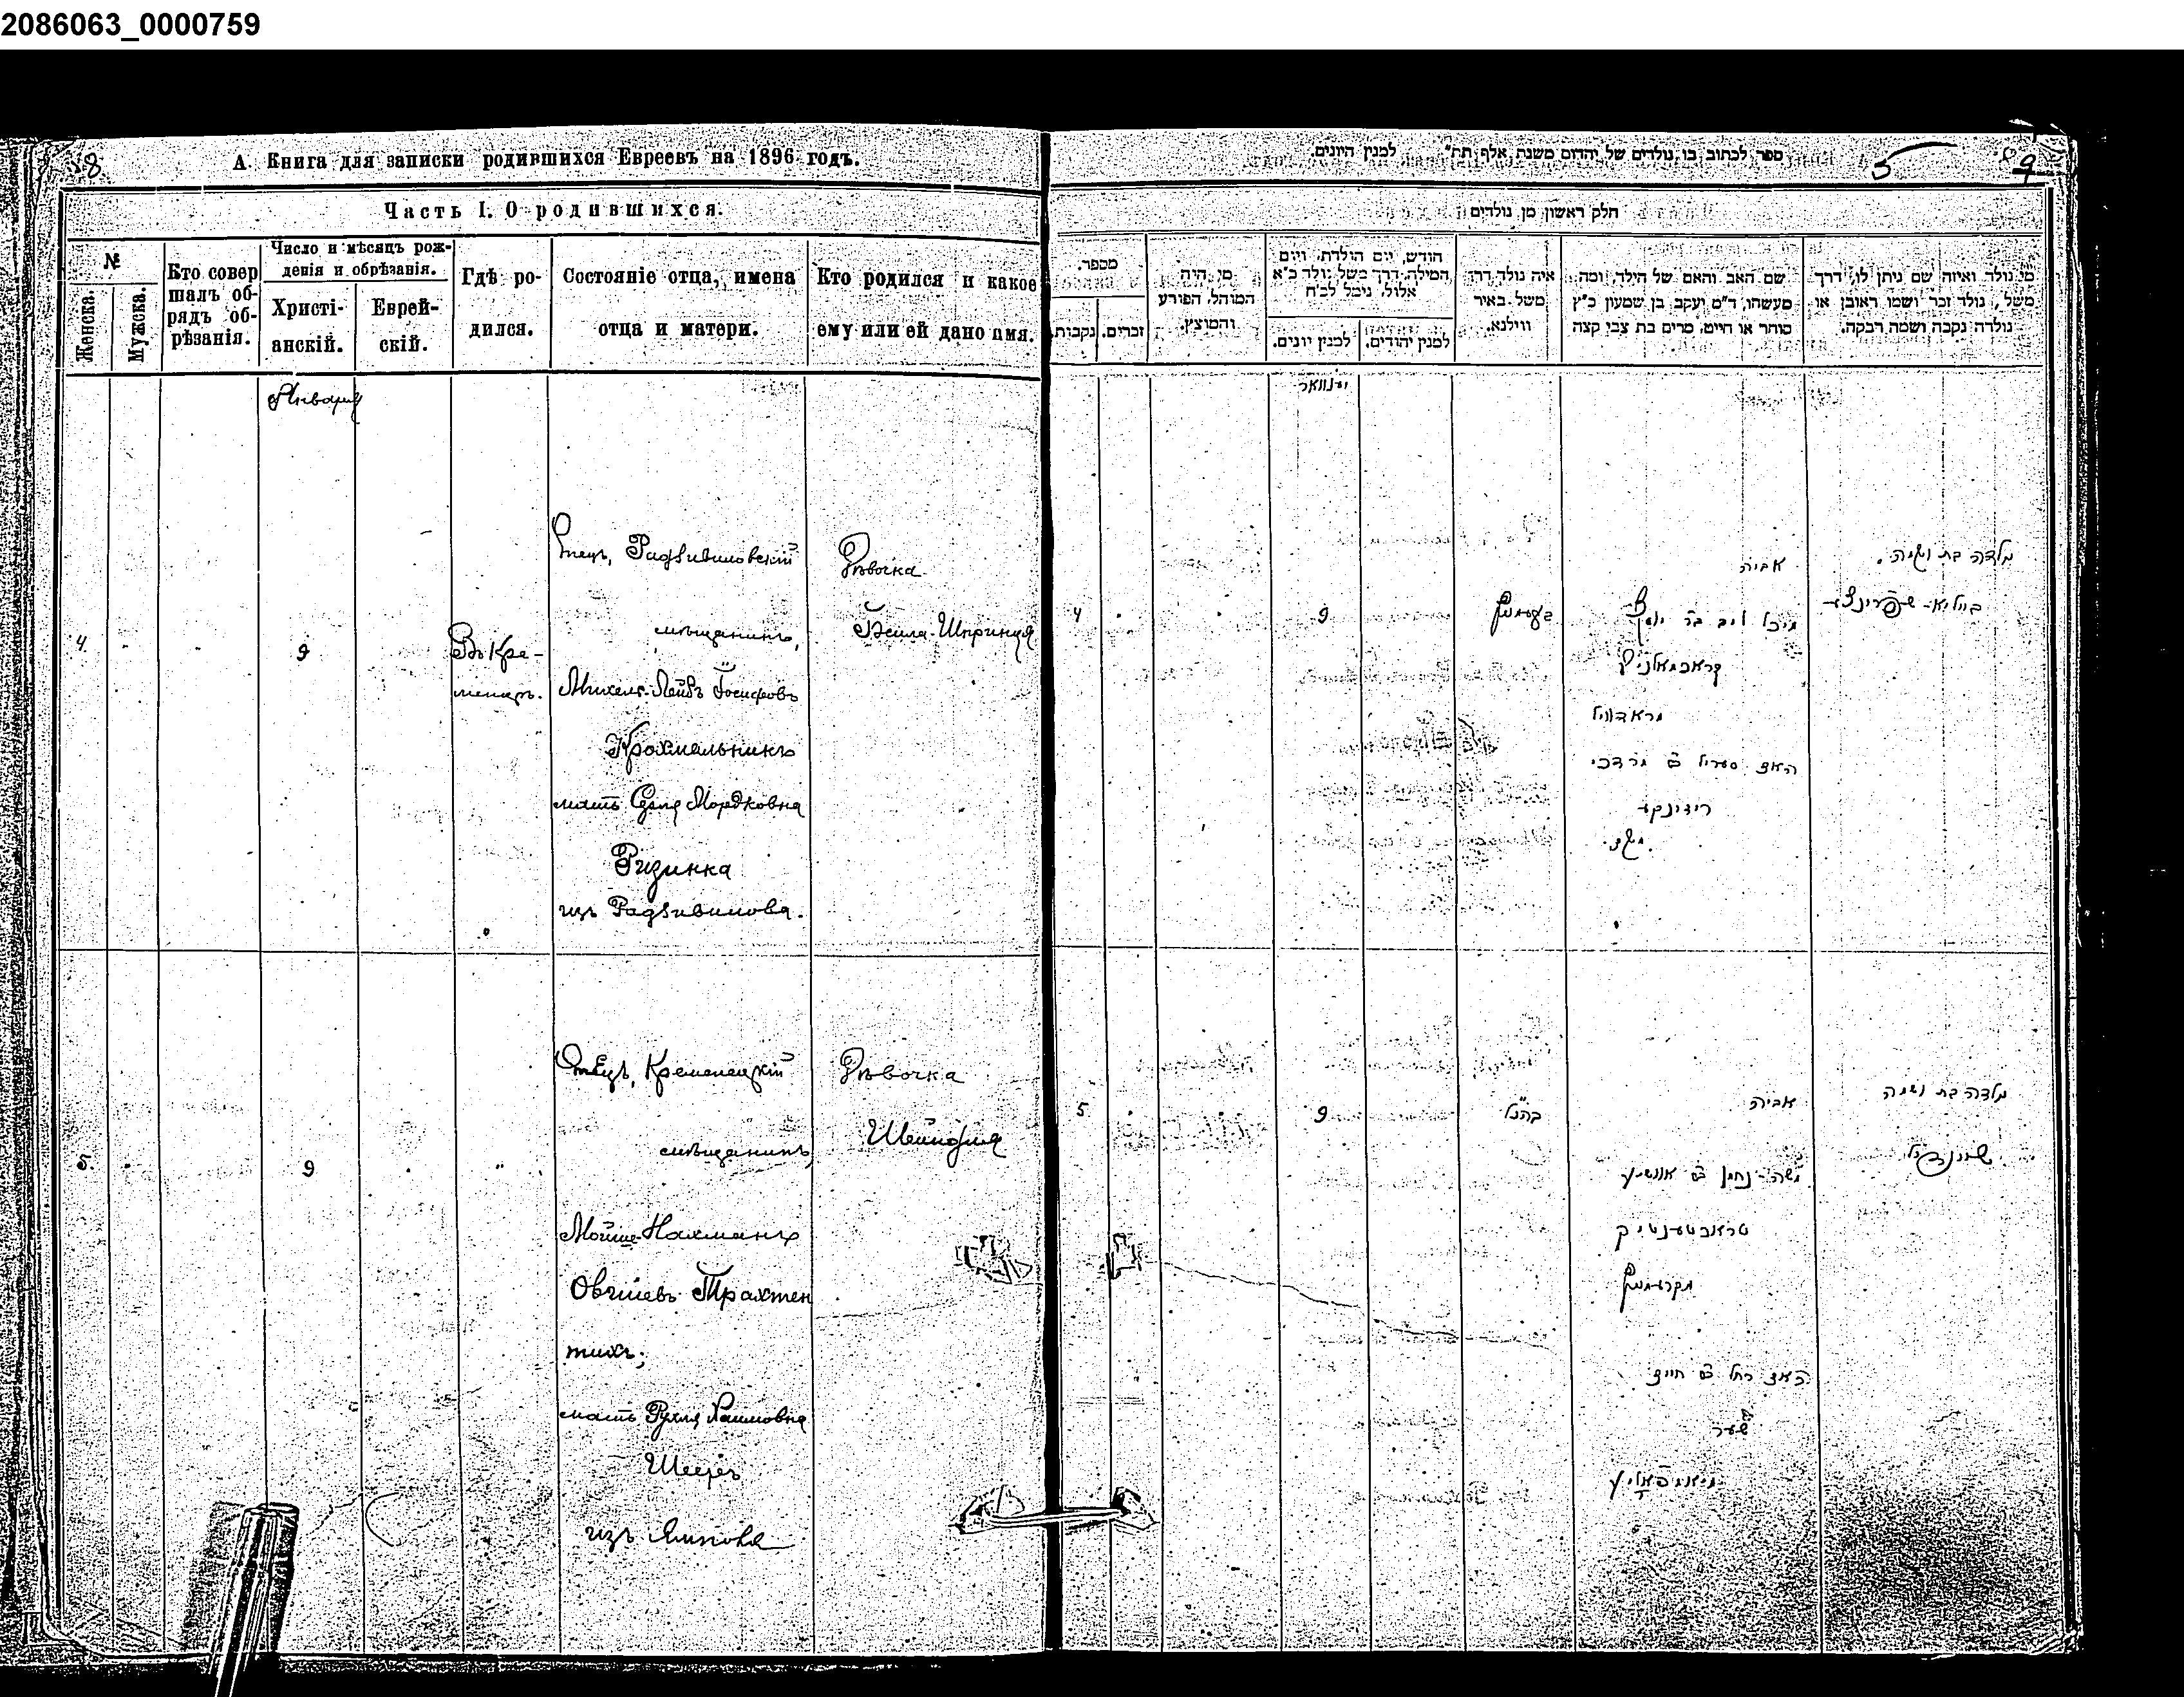 2086063_0000759
А. Книга для записки родившихся Евреевъ на 1896 годъ.
Часть I. О родившихся.
№
Женска.
Мужска.
Кто совер
шалъ об-
рядъ об-
рѣзанія.
Число и мѣсяцъ рож-
денія и обрѣзанія.
Христі-
анскій.
Еврей-
скій.
Гдѣ ро-
дился.
Состояніе отца, имена
отца и матери.
Кто родился и какое
ему или ей дано имя.
Января
4.
9
Въ Кре-
менцѣ.
Отецъ, Радзивиловскій
мѣщанинъ,
Михель-Лейбъ Іосифовъ
Крохмальникъ
мать Сура Мордковна
Ризинка
изъ Радзивилова.
Дѣвочка
Бейла-Шпринця
5.
9
"
Отецъ, Кременецкій
мѣщанинъ,
Мойше-Нахманъ
Овшіевъ Трахтен
тихъ,
мать Рухля Хаимовна
изъ
Дѣвочка
ספר לכתוב בו נולדים של יהדום משנת אלף תת" למנין היונים
5
9
חלק ראשון מן נולדים
מספר.
נקבות.
זכרים.
מי היה
המוהל, הפורע
והמוצץ.
חודש, יום הולדת, ויום
המילה, דרך משל נולד כ"א
אלול, נימל לכ"ח
למנין יונים.
למנין יהודים.
איה נולד דרך
משל באיר
ווילנא.
שם האב והאם של הילד, ומה
מעשהו, ד"מ יעקב בן שמעון כ"ץ
סוחר או חייט, מרים בת צבי קצה
מי נולד ואיזה שם ניתן לו, דרך
משל, נולד זכר ושמו ראובן או
נולדה נקבה ושמה רבקה.
יאנוואר
4
9
אביה
מיכל ליב בר יוסף
קראכמאלניק
מראדוויל
האם סעריל בת מרדכי
רידינקא
משם.
נולדה בת ושמה
ביילא-שפרינצא
5
9
כהנ"ל
אביה
משה-נחמן
טראכטענטיק
מקרעמעניץ
האם רחל בת חיים
נולדה בת ושמה
שיינדיל